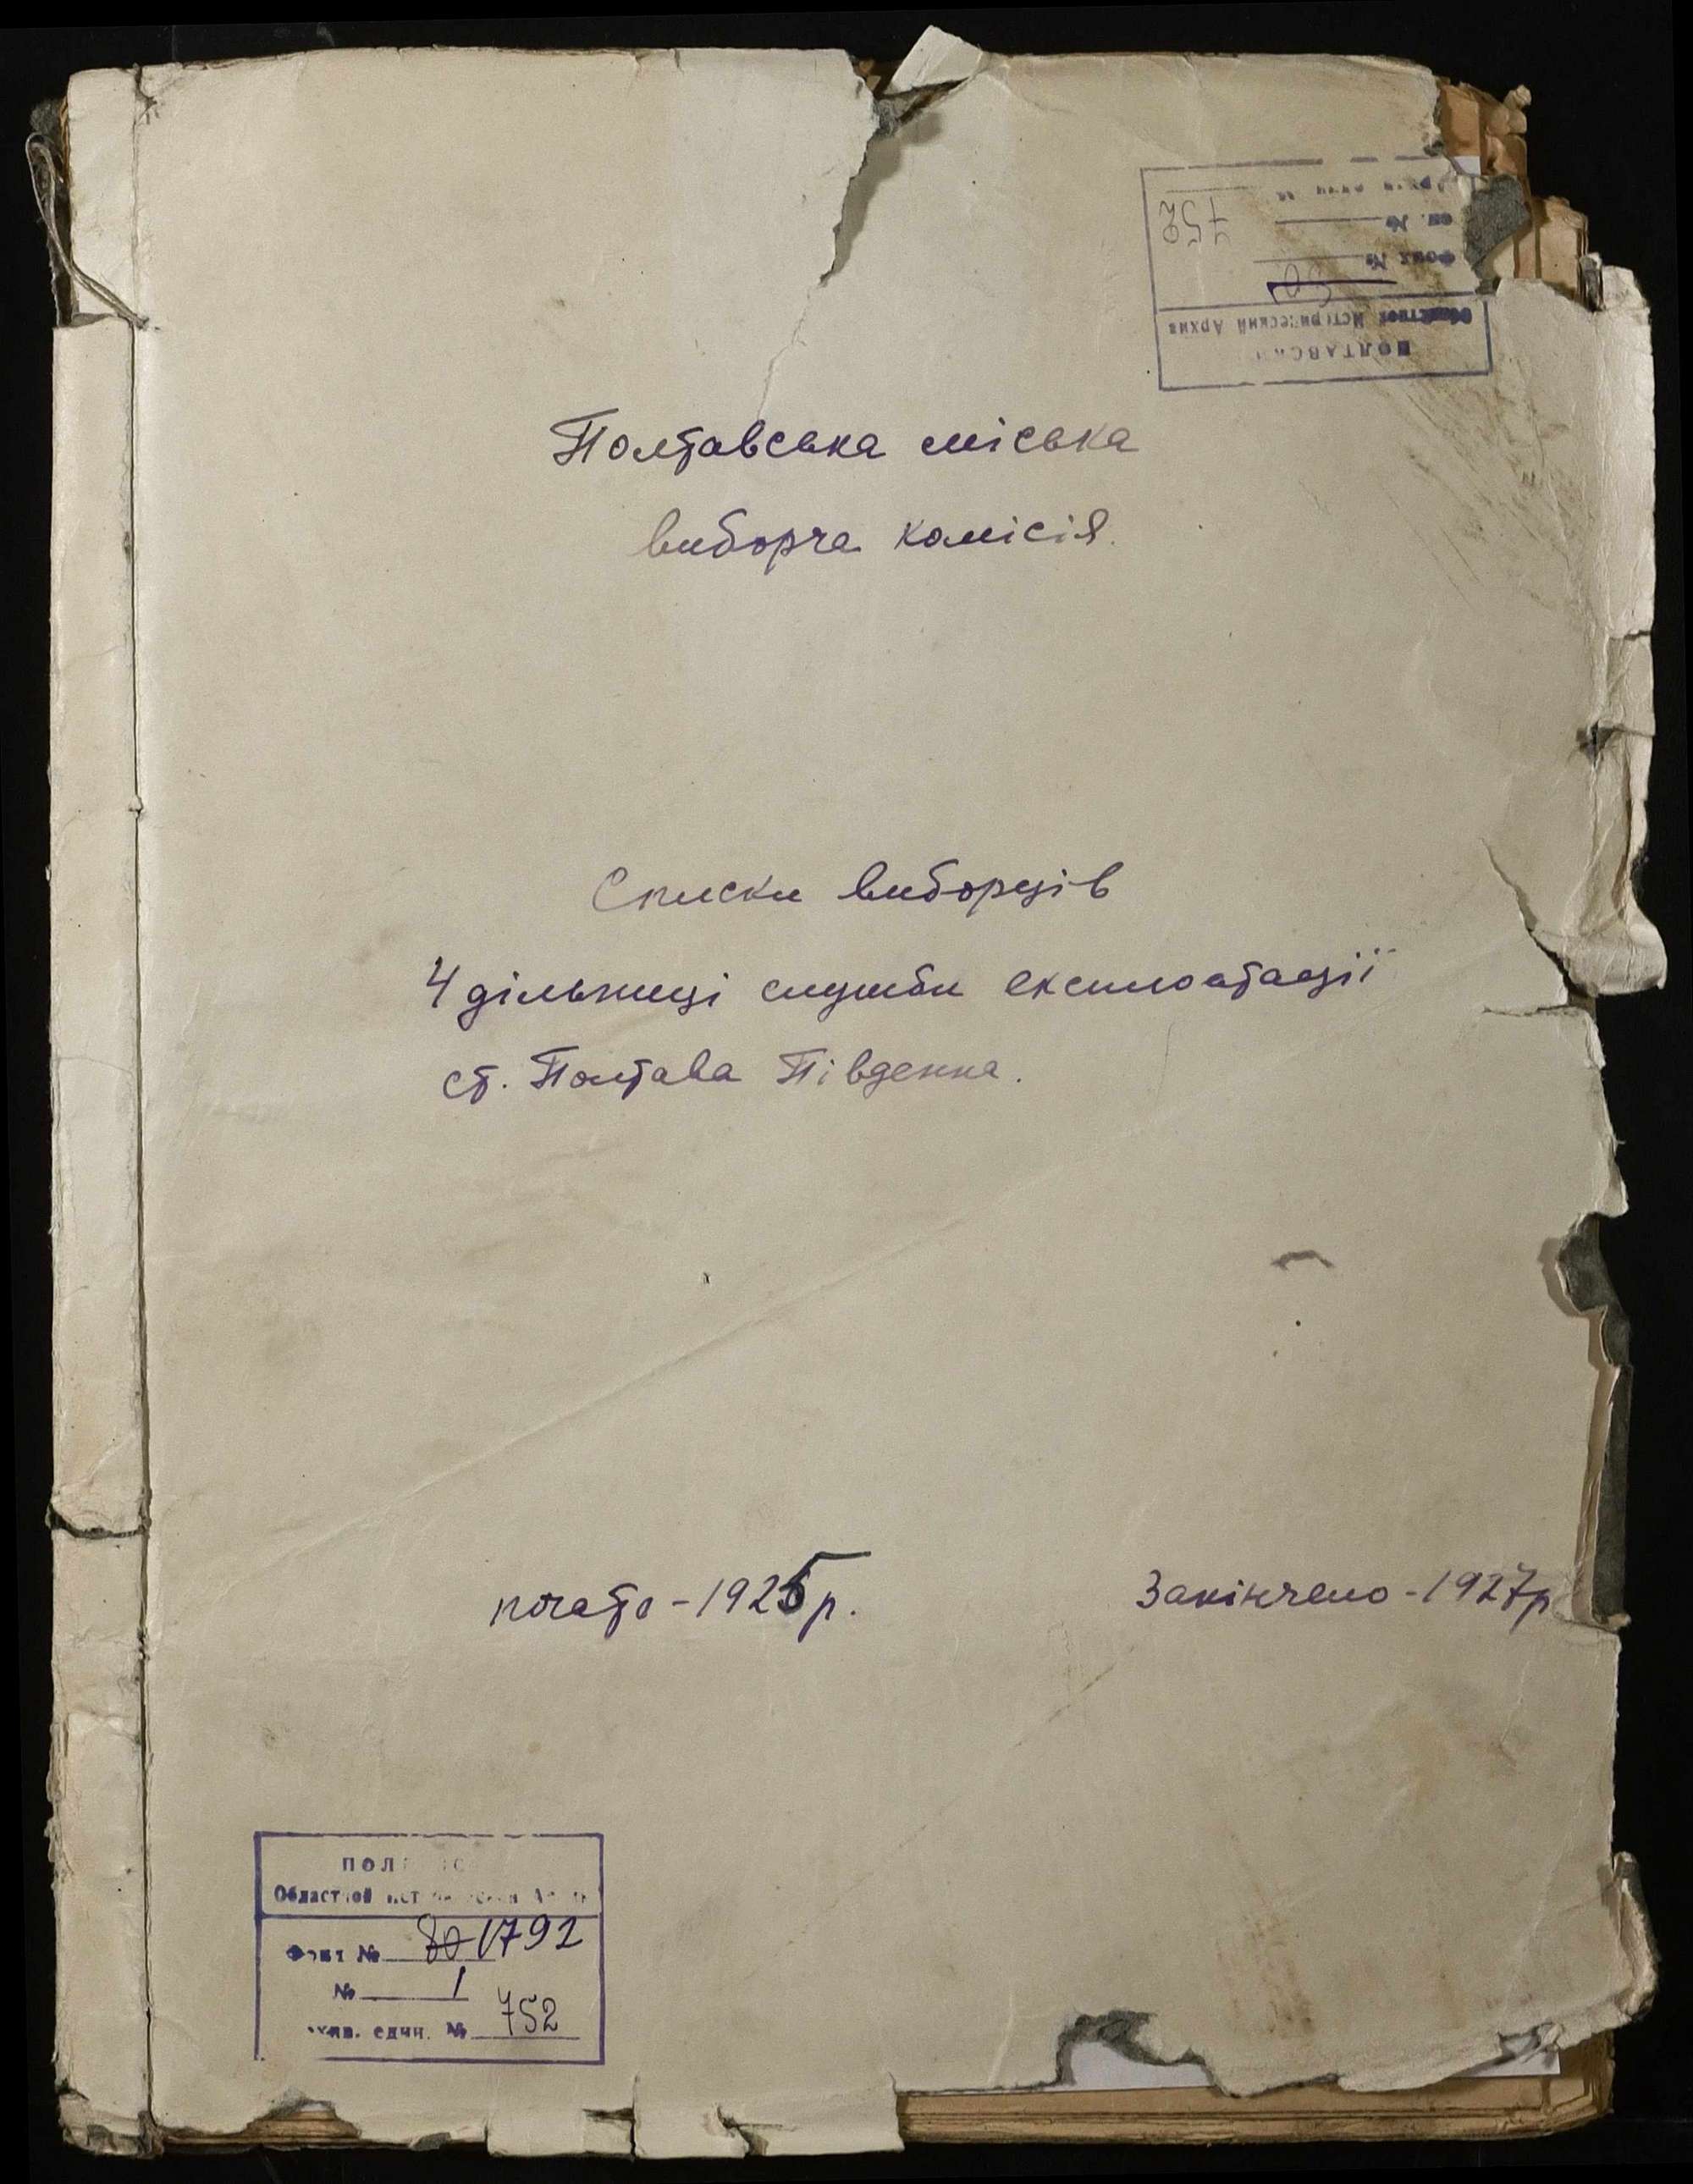 ПОЛТАВСК
Областной Исторический Архив
Фонд №
оп. №
752
Полтавська міська
виборча комісія.
Списки виборців
4 дільниці служби експлоатації
ст. Полтава Південна.
почато - 1925 р.
Закінчено - 1927 р
ПОЛ
Областной
Фонд № 80 1792
№ 1
един. № 752